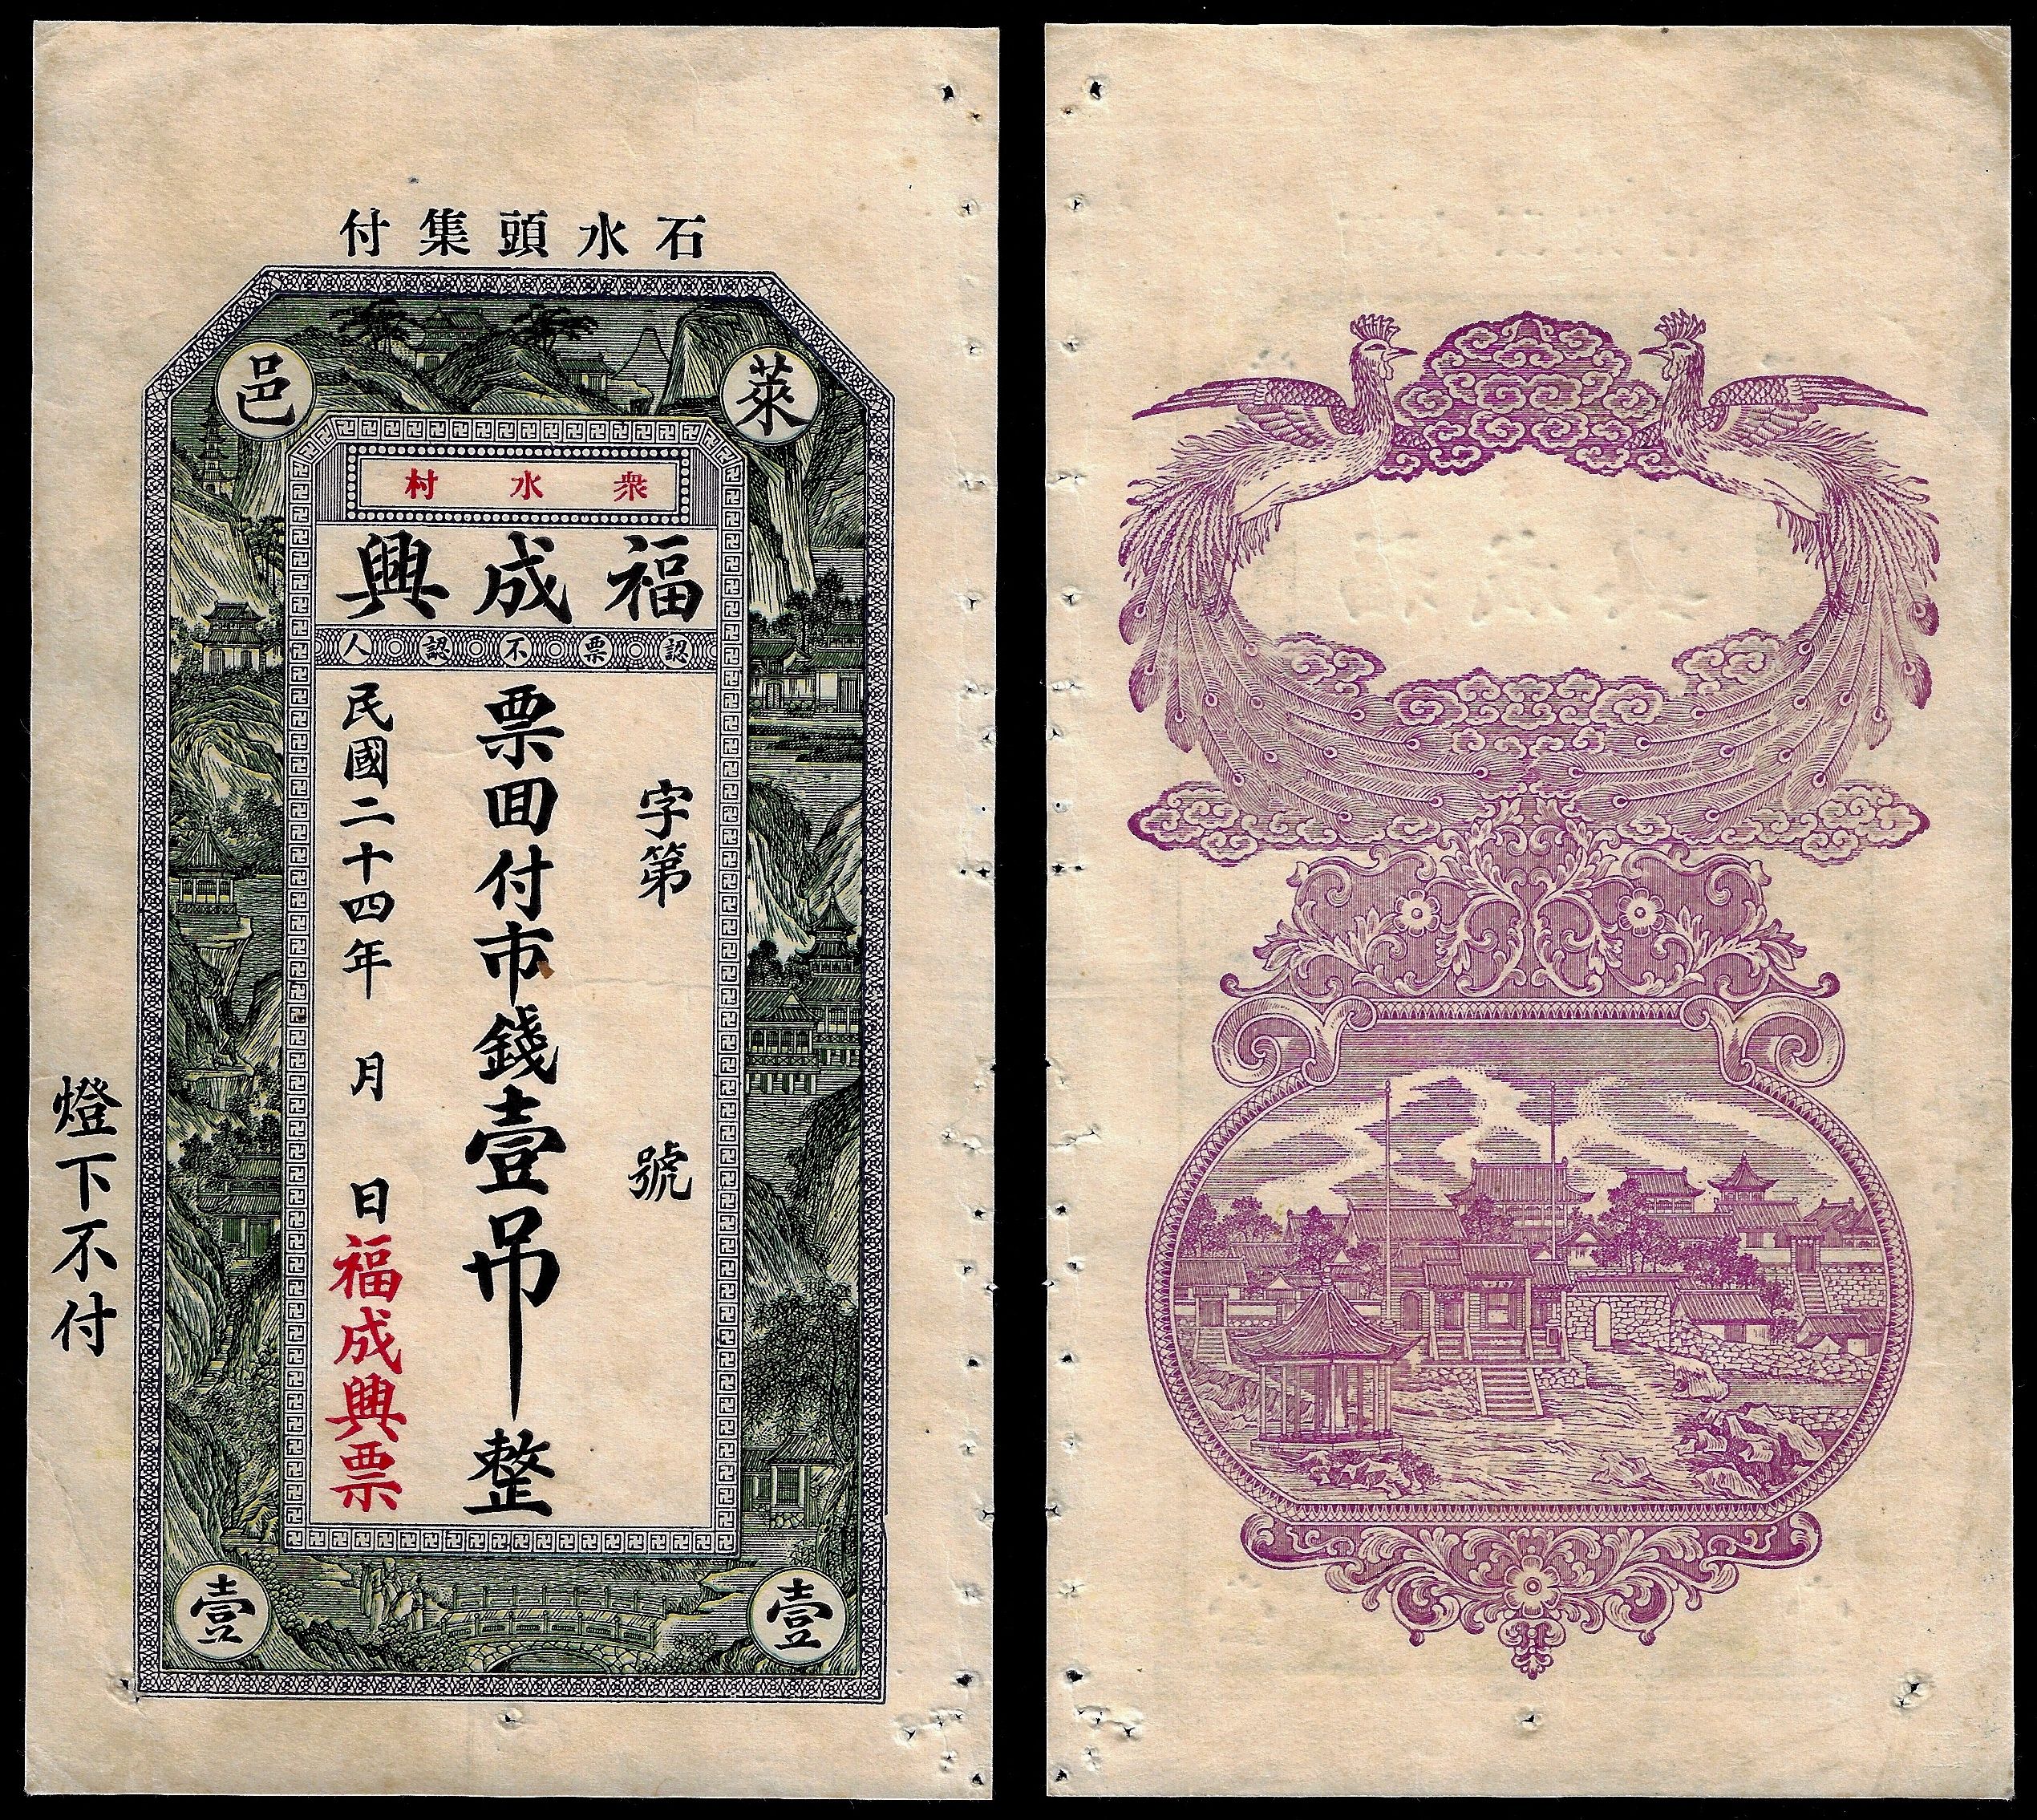 石水頭集付
萊邑
衆水村
福成興
認票不認人
字第 號
票回付市錢壹吊整
民國二十四年 月 日福成興票
燈下不付
壹 壹